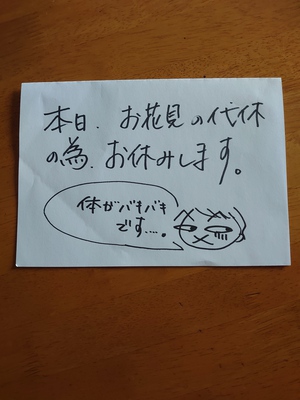 本日、お花見の代休
の為、お休みします。
体がバキバキ
です….。